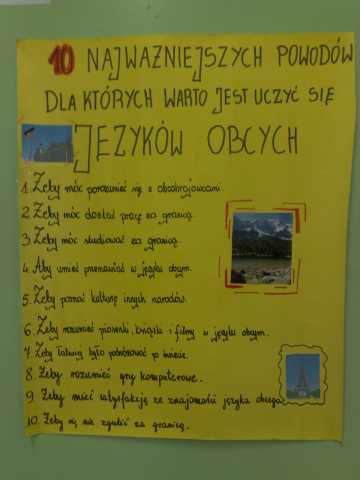 10 NAJWAŻNIEJSZYCH POWODÓW
DLA KTÓRYCH WARTO JEST UCZYĆ SIĘ
JĘZYKÓW OBCYCH
1. Żeby móc porozumieć się z obcokrajowcami.
2. Żeby móc dostać pracę za granicą.
3. Żeby móc studiować za granicą.
4. Aby umieć przemawiać w języku obcym.
5. Żeby poznać kulturę innych narodów.
6. Żeby rozumieć piosenki, książki i filmy w języku obcym.
7. Żeby łatwiej było podróżować po świecie.
8. Żeby rozumieć gry komputerowe.
9. Żeby mieć satysfakcję ze znajomości języka obcego.
10. Żeby się nie zgubić za granicą.